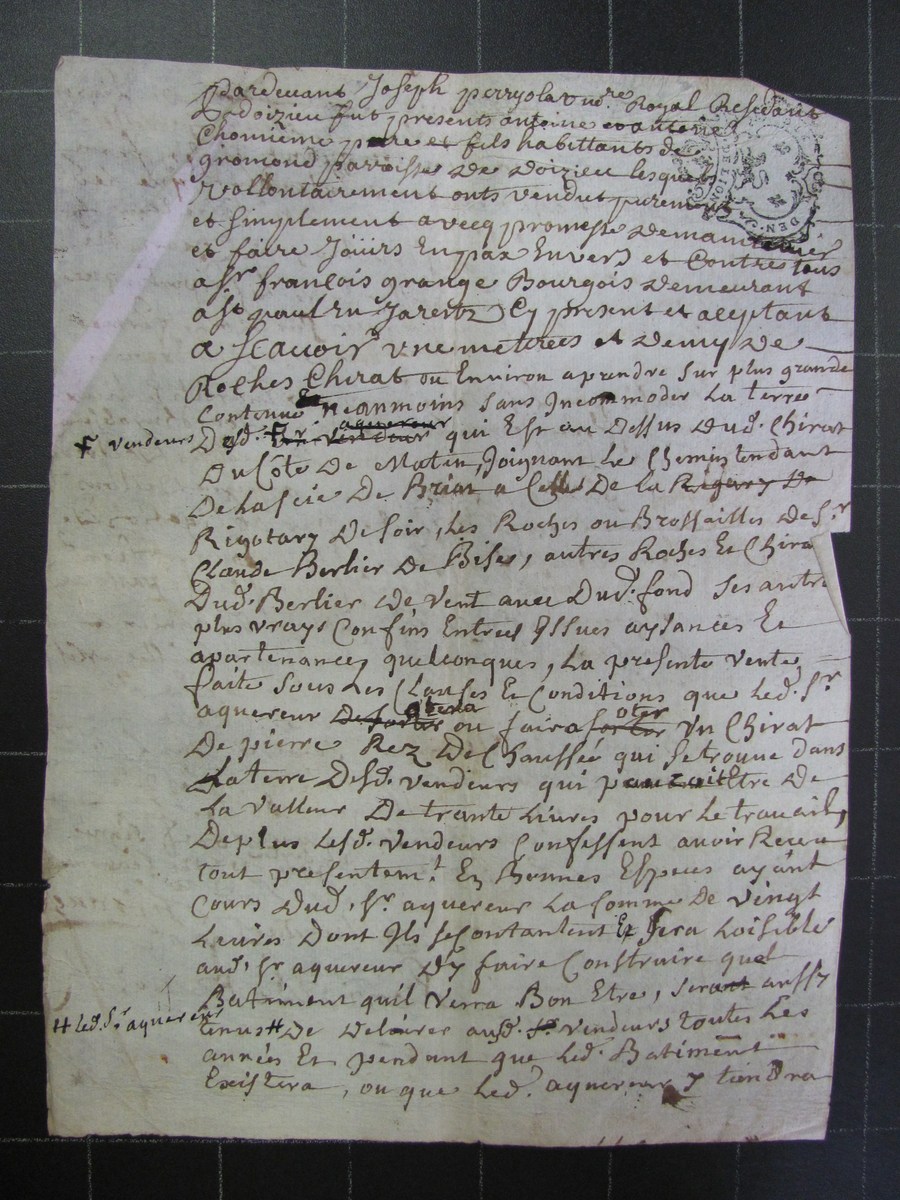 Pardevant Joseph perryola not.re Royal Residant
A doizieu fut presents antoine et anterieur
Chomienne pere et fils habittants de
gromond paroisse de doizieu lesquels
Vollontairement onts vendut purement
et simplement avecq promesse de maintenir
et faire Joüirs En paix Envers et Contres tous
a Sr. francois grange Bourgois demeurant
a St. paul En Jarertz Cy present et aceptant
a Scauoir vne metrees et demy de
Roches Chirat ou Environ aprendre sur plus grande
Contenue neanmoins sans Incommoder La terre
Desd. Sr. vendeur aquereur qui Est au Dessus Dud. Chirat
F vendeurs
Du Côte De Matin, Joignant Le Chemin tendant
De La scie De Briat a Celle De La Rigary De
Rigotary De soir, Les Roches ou Brossailles de Sr.
Claude Berlier De Bise, autres Roches Et Chirat
Dud. Berlier de vent avec Dud. fond ses autre
plus vrays Confins Entrees Yssues aysances Et
apartenances quelconques, La presente vente
faite sous Les Clauses Et Conditions que Led. Sr.
aquereur De sortir otera ou faira sortir oter Vn Chirat
De pierre Rez De Chaussée qui se trouve dans
La terre Desd. vendeurs qui pauroit Etre de
La valleur De trante Livres pour Le travail,
De plus Lesd. vendeurs Confessent avoir Receu
tout presentem.t En Bonnes Especes ayant
Cours Dud. Sr. aquereur La somme De vingt
Livres Dont Ils se contantent Et sera Loisible
aud. Sr. aquereur D'y faire Construire quel
Batiment qu'il verra Bon Etre, sera aussy
H Led. Sr. aquereur
tenus H de delivrer ausd. Sr. vendeurs toutes Les
années Et pendant que Led. Batiment
Existera, ou que Led. aquereur y tiendra